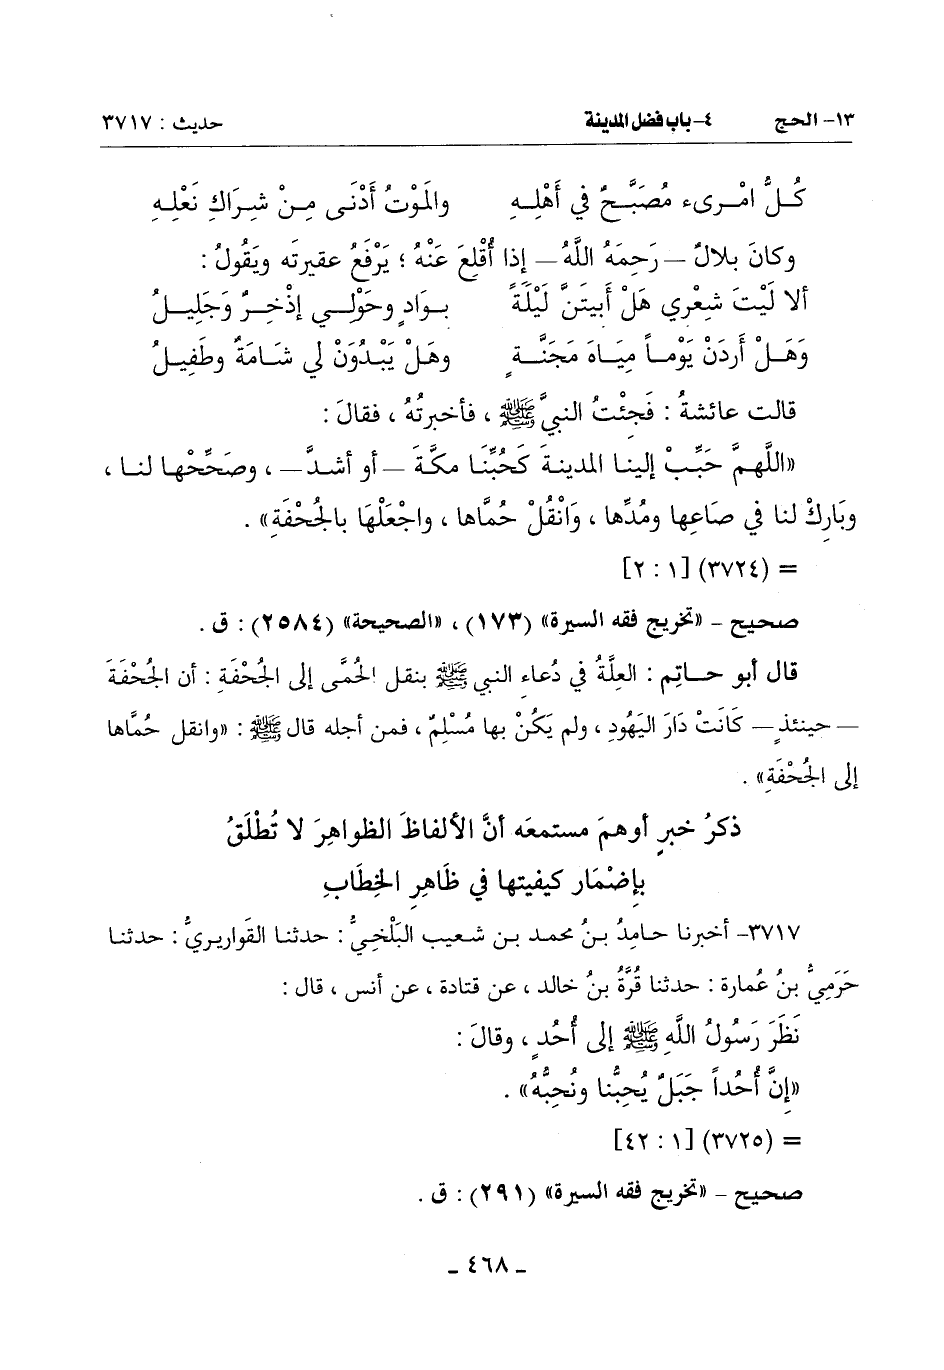 ١٣- الحج ٤- باب فضل المدينة حديث : ٣٧١٧
كُـلُّ امْـرىء مُصَبَّـحٌ في أَهْلِـهِ والَموْتُ أَدْنَـى مِـنْ شِـرَاكِ نَعْلِـهِ
وكانَ بلالٌ – رَحِمَهُ اللَّهُ – إذا أُقْلِعَ عَنْهُ ؛ يَرْفَعُ عقيرتَه ويَقُولُ :
ألا لَيْتَ شِعْري هَلْ أَبيتَنَّ لَيْلَةً بـوَادٍ وحَوْلـي إذْخِـرٌ وَجَلِيـلُ
وَهَـلْ أَردَنْ يَوْمـاً مِيَـاهَ مَجَنَّـةٍ وهَـلْ يَبْـدُوَنْ لي شَـامَةٌ وطَفِيـلُ
قالت عائشةُ : فَجِئْتُ النبيَّ ﷺ ، فأخبرتُهُ ، فقالَ :
«اللَّهمَّ حَبِّبْ إلينا المدينةَ كَحُبِّنَا مكَّةَ –أو أشدَّ– ، وصَحِّحْها لنا ،
وبَارِكْ لنا في صَاعِها ومُدِّها ، وَانْقُلْ حُمَّاها ، واجْعَلْهَا بالجُحْفَةِ» .
= (٣٧٢٤) [١ : ٢]
صحيح – «تخريج فقه السيرة» (١٧٣) ، «الصحيحة» (٢٥٨٤) : ق .
قال أبو حـاتِم : العِلَّةُ في دُعاءِ النبي ﷺ بنقل الحُمَّى إلى الجُحْفَةِ : أن الجُحْفَةَ
– حينئذٍ – كَانَتْ دَارَ اليَهُودِ ، ولم يَكُنْ بها مُسْلِمٌ ، فمن أجله قال ﷺ : «وانقل حُمَّاها
إلى الجُحْفَةِ» .
ذكرُ خبرٍ أوهمَ مستمعَه أنَّ الألفاظَ الظواهِرَ لا تُطْلَقُ
بإضْمَارِ كيفيتها في ظَاهِرِ الخِطَابِ
٣٧١٧- أخبرنا حـامِدُ بـنُ محمد بـن شعيب البَلْخِيُّ : حدثنـا القَواريريُّ : حدثنـا
حَرَمِيُّ بنُ عُمارة : حدثنا قُرَّةُ بنُ خالد ، عن قتادة ، عن أنس ، قال :
نَظَرَ رَسُولُ اللَّهِ ﷺ إلى أُحُدٍ ، وقالَ :
«إنَّ أُحُداً جَبَلٌ يُحِبُّنا ونُحِبُّهُ» .
= (٣٧٢٥) [١ : ٤٢]
صحيح – «تخريج فقه السيرة» (٢٩١) : ق .
- ٤٦٨ -